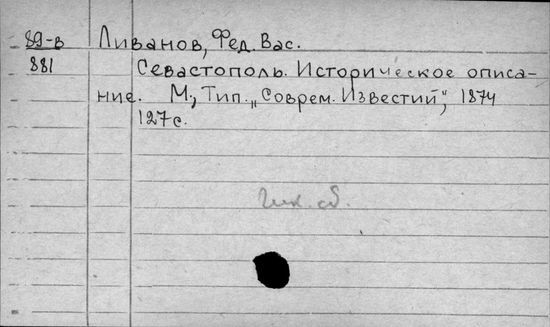 89-в Ливанов, Фед. Вас.
881 Севастополь. Историческое описа-
ние. М., Тип. „Соврем. Известий", 1874
127 с.